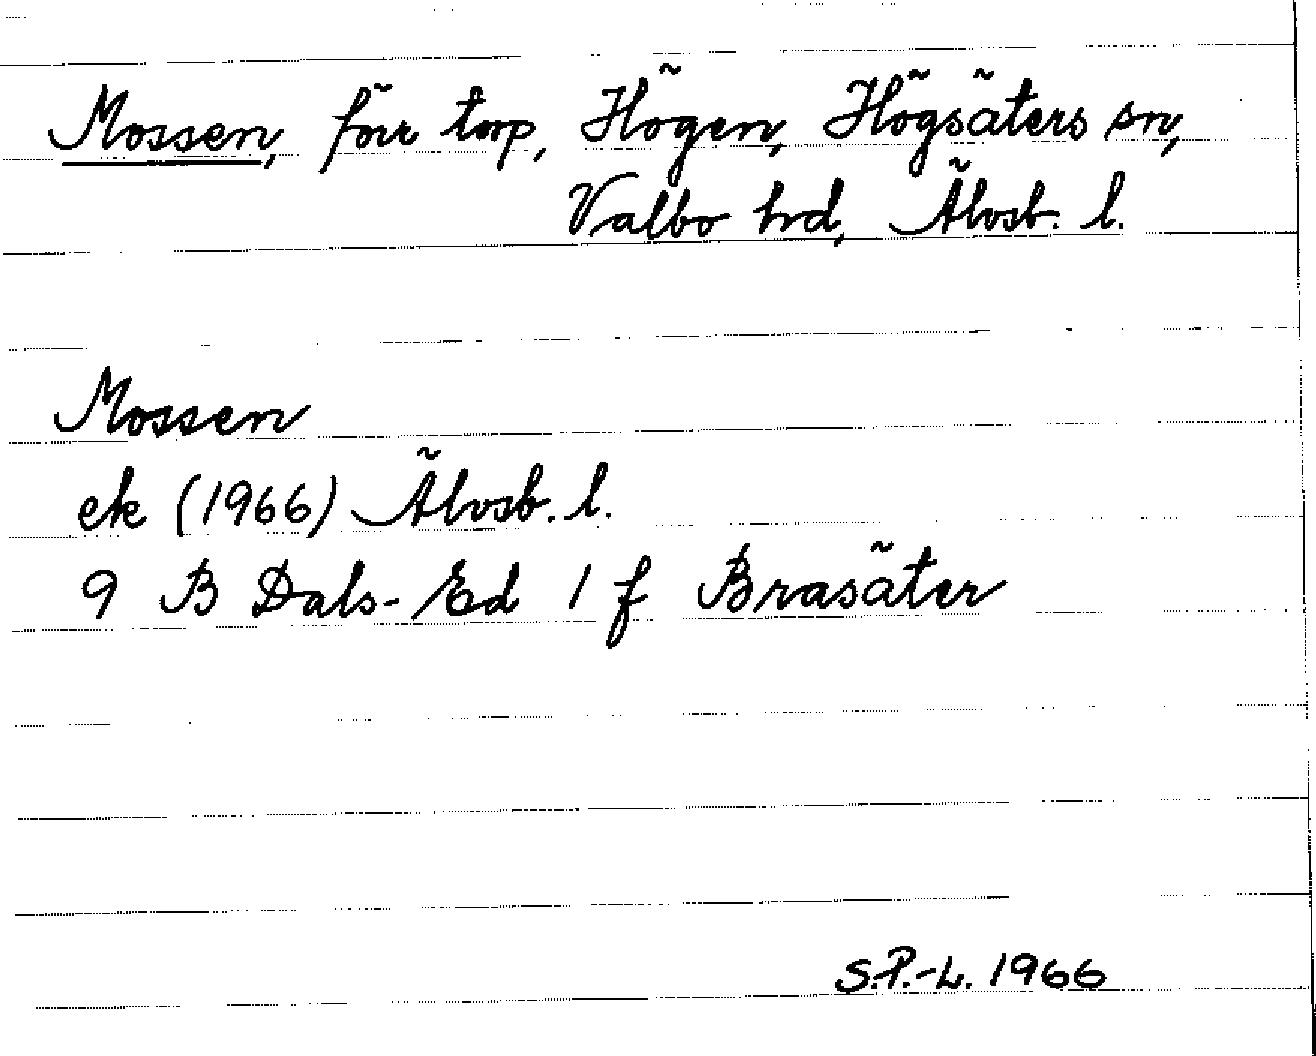 Mossen, förr torp, Högen, Högsäters sn,
Valbo hrd, Älvsb. l.
Mossen
ek (1966) Älvsb. l.
9 B Dals-Ed 1 f Brasäter
S.P.-L. 1966